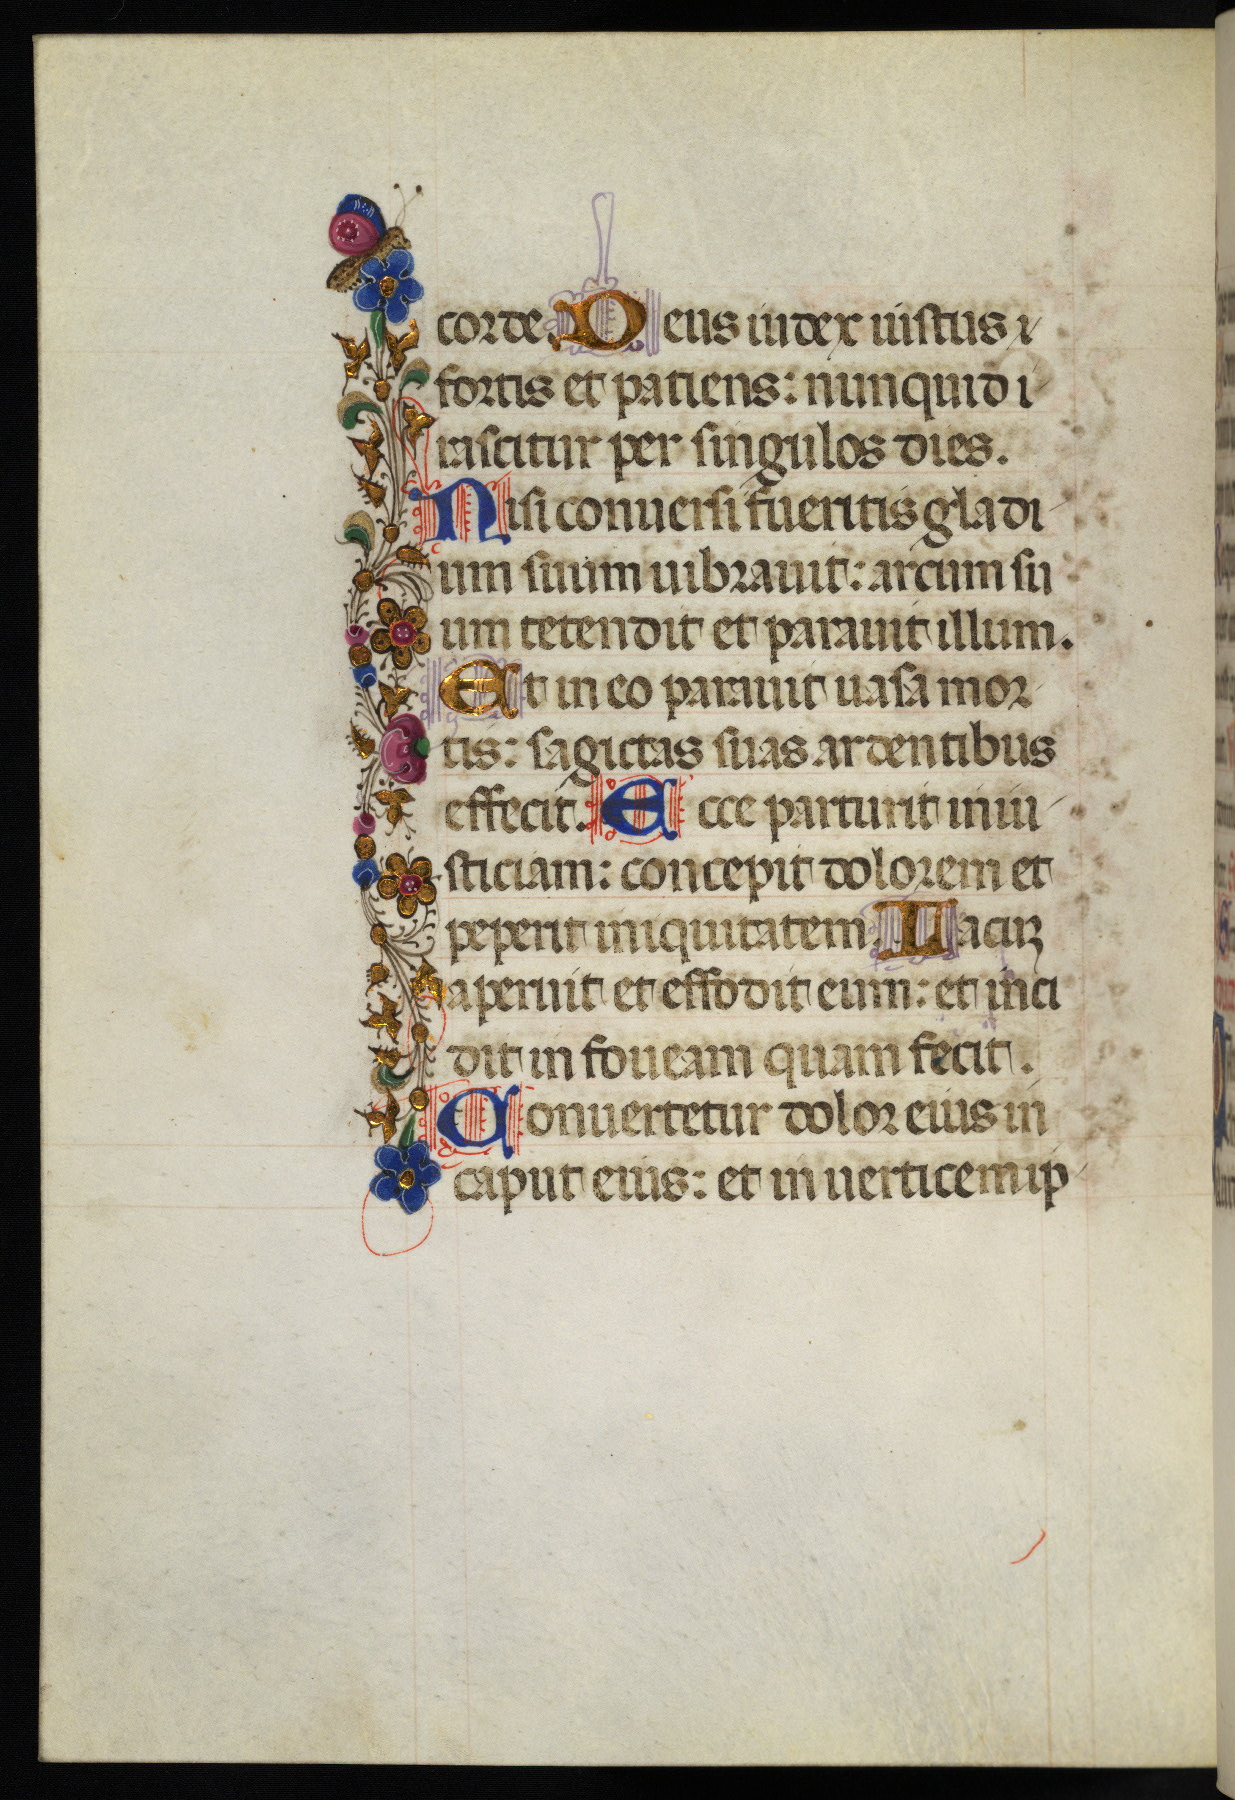 corde. Deus iudex iustus ⁊
fortis et patiens: nunquid i
rascitur per singulos dies.
Nisi conuersi fueritis gladi
um suum uibrauit: arcum su
um tetendit et parauit illum.
Et in eo parauit uasa mor
tis: sagictas suas ardentibus
effecit. Ecce parturit iniu
sticiam: concepit dolorem et
peperit iniquitatem. Lacuꝫ
aperuit et effodit eum: et inci
dit in foueam quam fecit.
Conuertetur dolor eius in
caput eius: et in uerticem ip